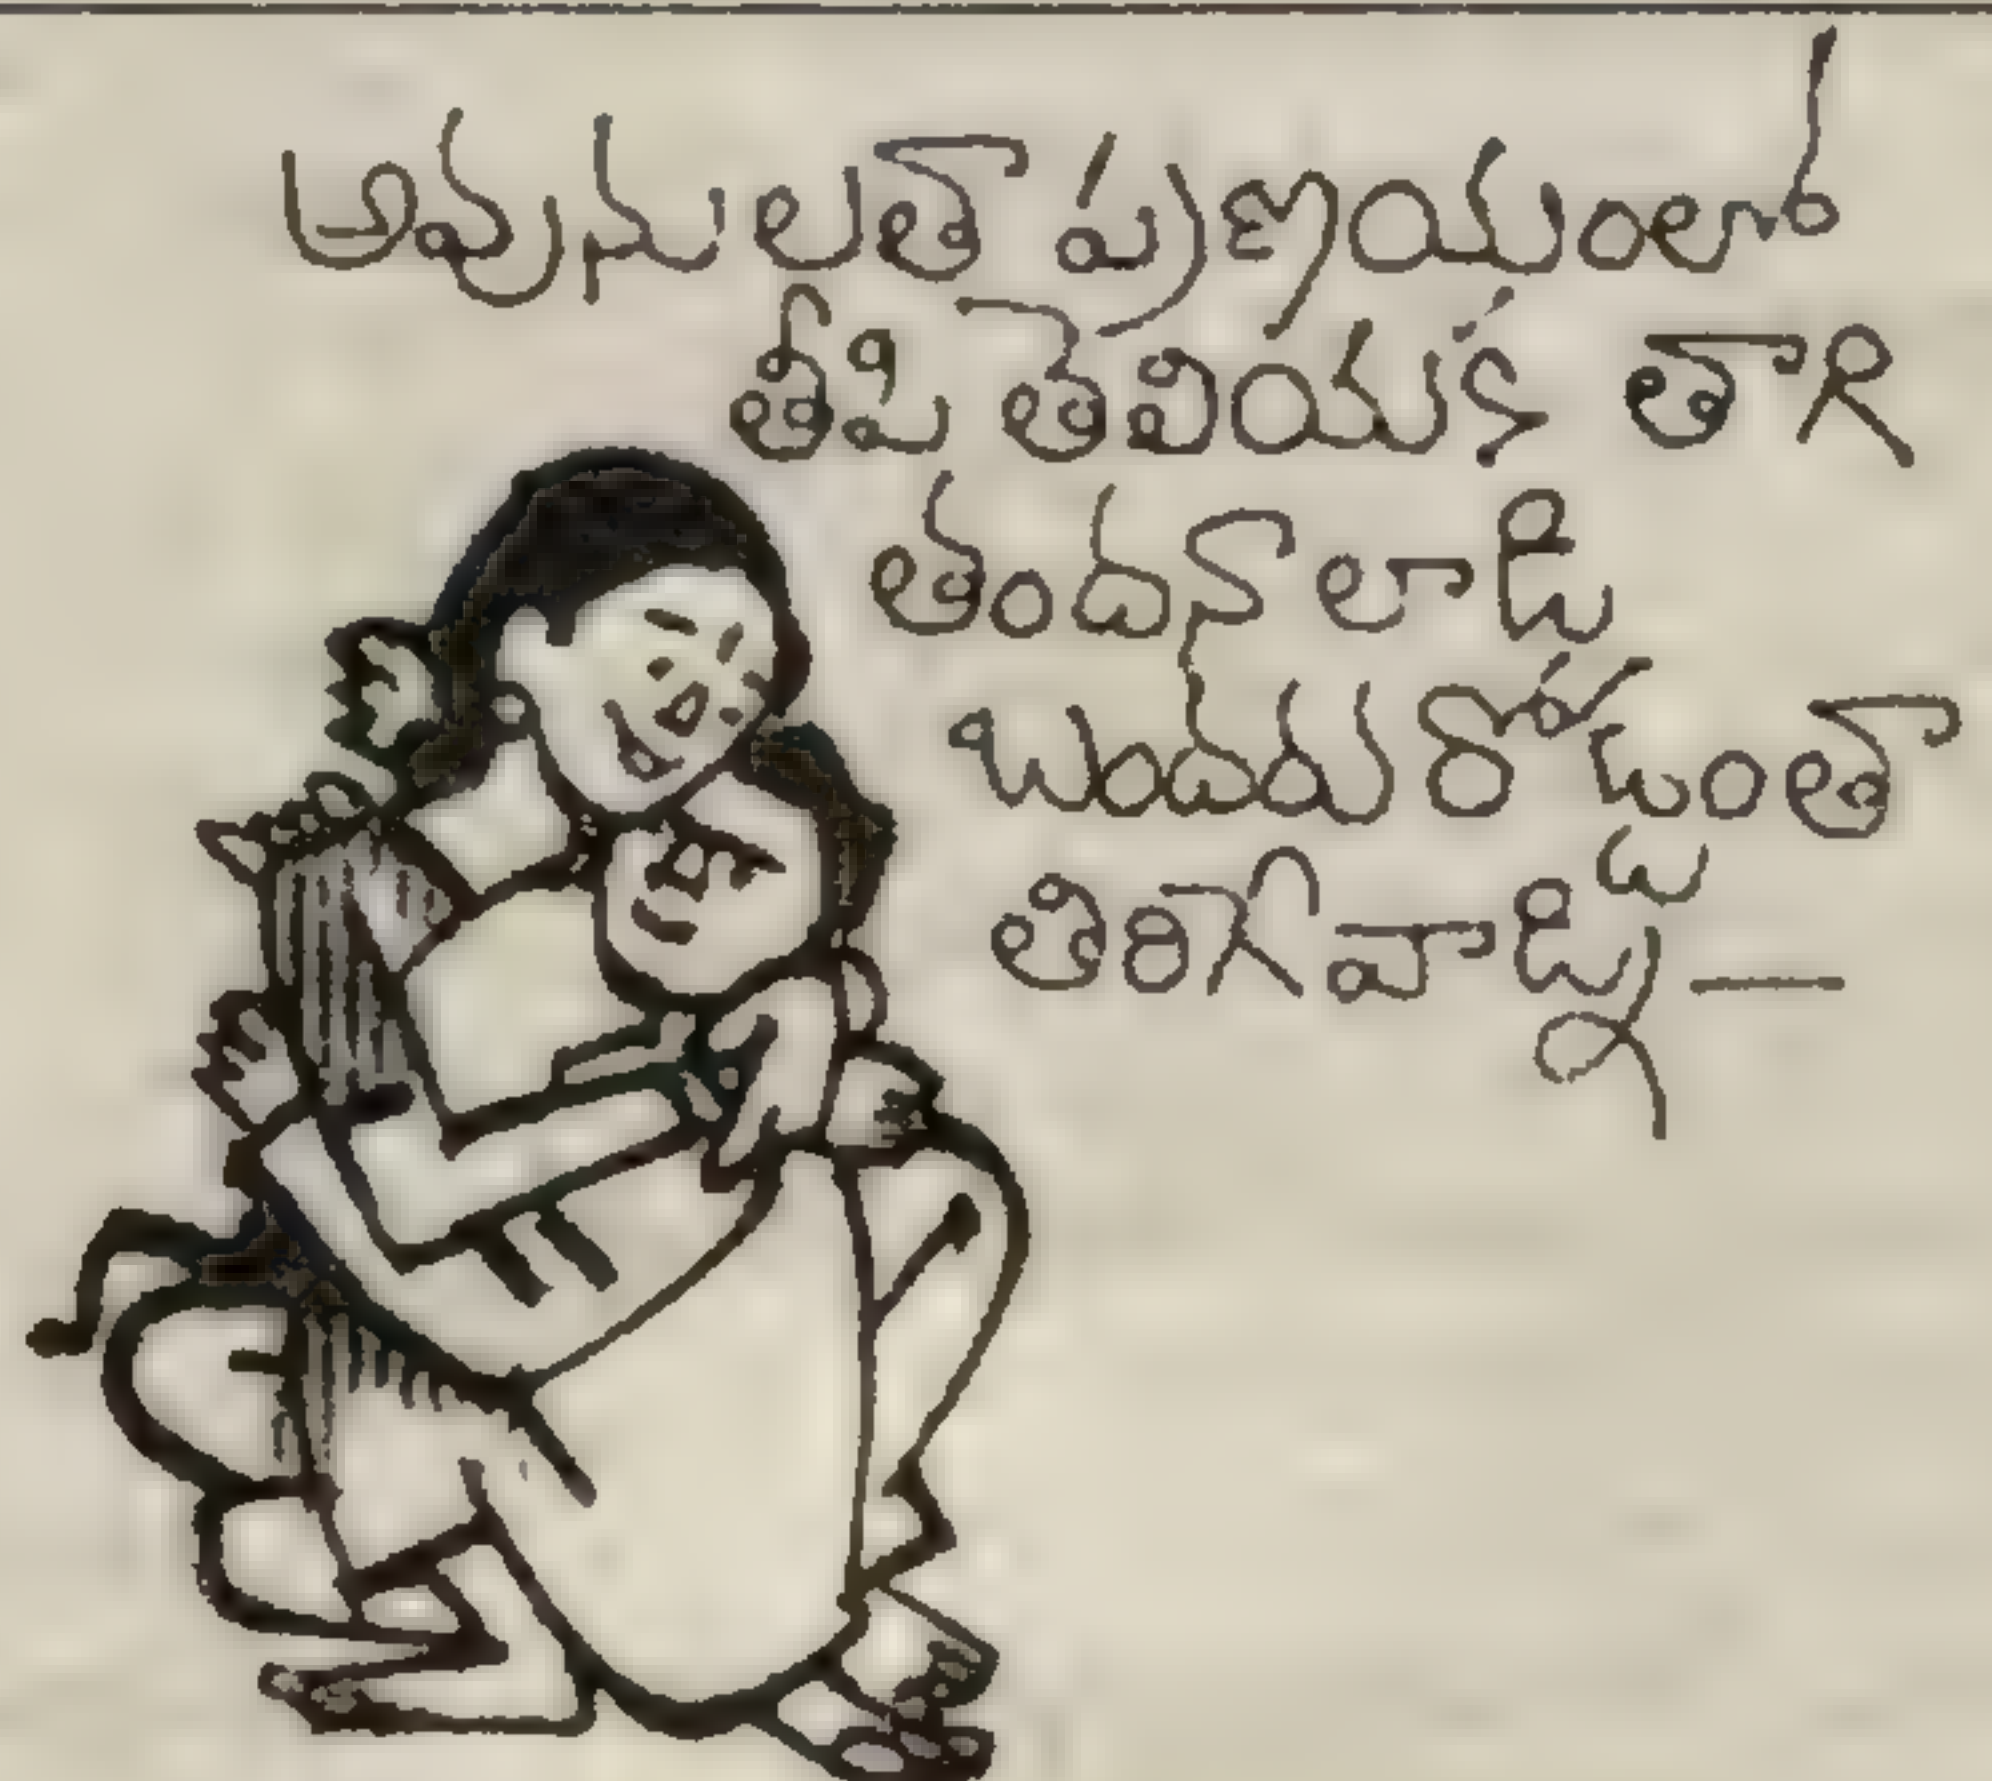 అమ్మనులతో ప్రణయంలో
తీపి తెలియక తాగి
తందనాలాడి
బందరు రోడ్డంతా
తిరిగేవాడ్ని —